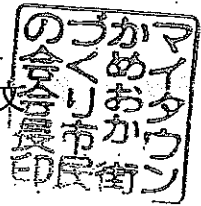 マイタウン
かめおか街
づくり市民
の会会長印